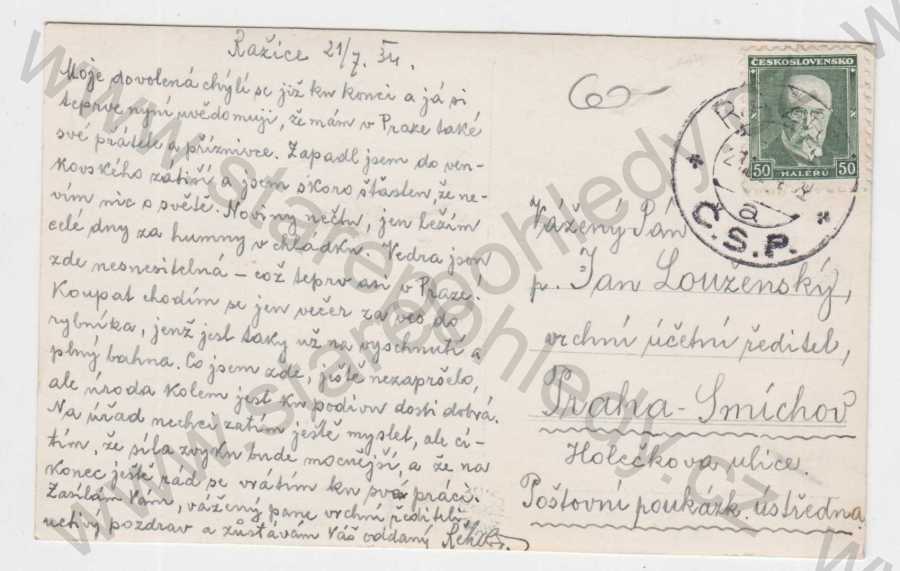 Ražice 21/7. 34.
Moje dovolená chýlí se již ku konci a já si
teprve nyní uvědomuji, že mám v Praze také
své přátele a příznivce. Zapadl jsem do ven-
kovského zátiší a jsem skoro šťasten, že ne-
vím nic o světě. Noviny nečtu, jen ležím
celé dny za humny v chládku. Vedra jsou
zde nesnesitelná – což teprv asi v Praze!
Koupat chodím se jen večer za ves do
rybníka, jenž jest taky už na vyschnutí a
plný bahna. Co jsem zde, ještě nezapršelo,
ale úroda kolem jest ku podivu dosti dobrá.
Na úřad nechci zatím ještě myslet, ale cí-
tím, že síla zvyku bude mocnější, a že na
konec ještě rád se vrátím ku své práci.
Zasílám Vám, vážený pane vrchní řediteli
uctivý pozdrav a zůstávám Váš oddaný
ČESKOSLOVENSKO
50 HALÉŘŮ 50
Č.S.P.
a
Vážený Pán
p. Jan Louženský,
vrchní účetní ředitel,
Praha-Smíchov
Holečkova ulice.
Poštovní poukázk. ústředna
www.starepohledy.cz